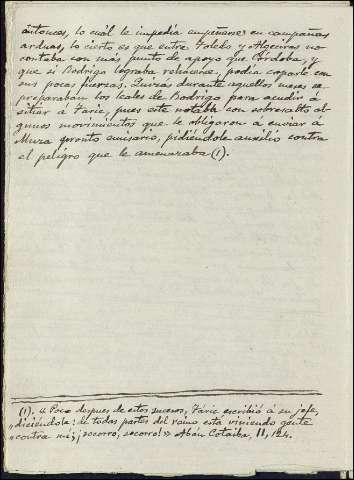 entonces, lo cuál le impedia empeñarse en campañas
arduas, lo cierto es que entre Toledo y Algeciras no
contaba con más punto de apoyo que Córdoba, y
que si Rodrigo lograba rehacerse, podia coparle con
sus pocas fuerzas. Quizás durante aquellos meses se
preparaban los leales de Rodrigo para acudir á
sitiar á Táric, pues este notaba con sobresalto al-
gunos movimientos que le obligaron á enviar á
Muza pronto emisario, pidiéndole auxilio contra
el peligro que le amenazaba (1).
(1). « Poco despues de estos sucesos, Táric escribió á su jefe,
„ diciéndole: de todas partes del reino está viniendo gente
„ contra mí; ¡socorro, socorro! » Aben Cotaiba, II, 124.